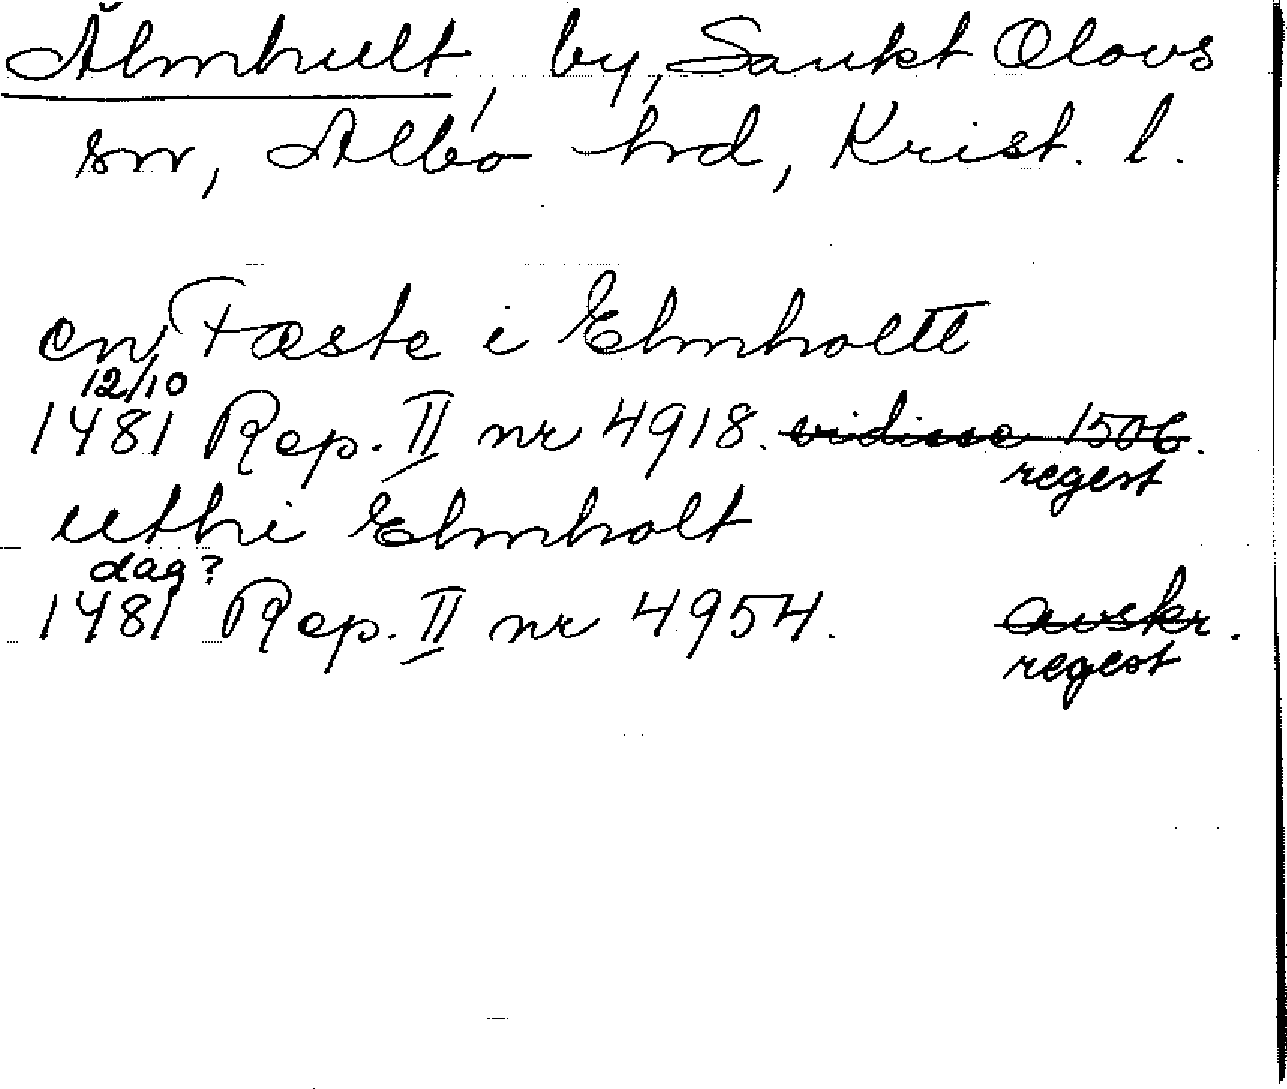 Älmhult, by, Sankt Olovs
sn, Albo hrd, Krist. l.
en Fæste i Elmholtt
12/10
1481 Rep. II nr 4918. vidisse 1506.
regest
uthi Elmholt
dag?
1481 Rep. II nr 4954. avskr.
regest